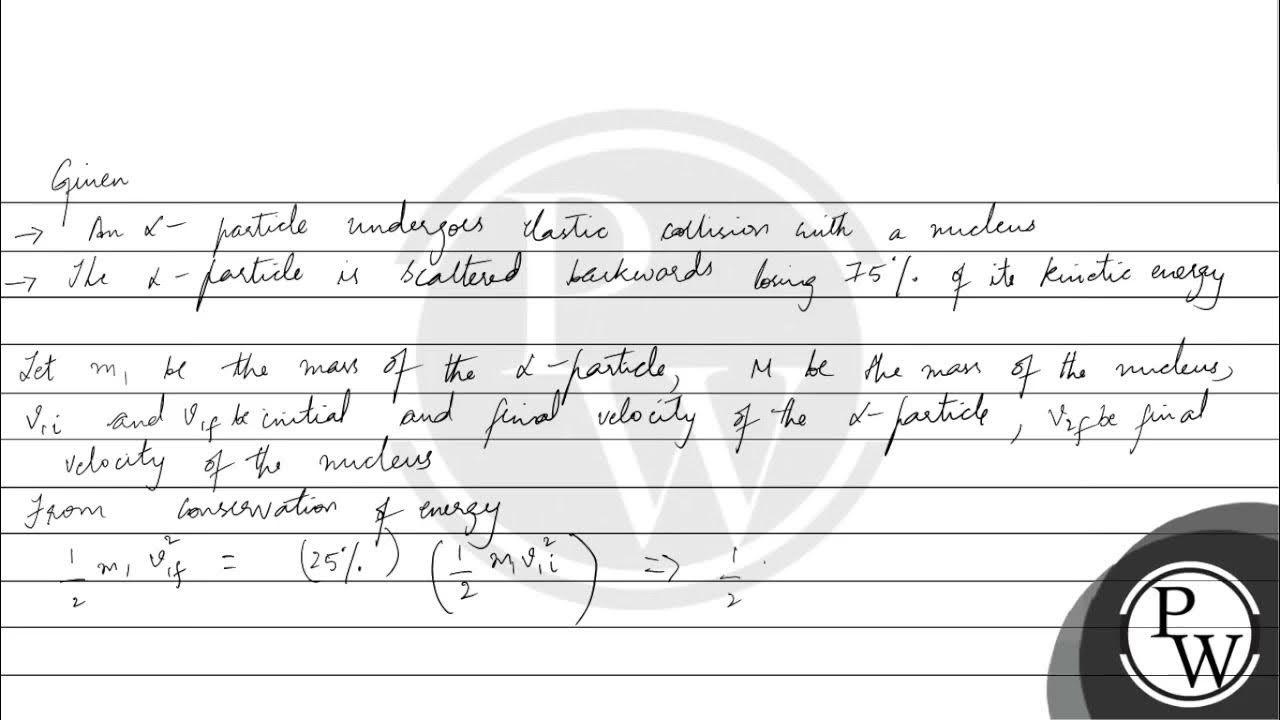 Given
→ An α- particle undergoes elastic collision with a nucleus
→ The α- particle is scattered backwards losing 75%. of its kinetic energy
Let m₁ be the mass of the α-particle, M be the mass of the nucleus,
v₁ᵢ and v₁f be initial and final velocity of the α-particle, v₂f be final
velocity of the nucleus
From conservation of energy
1/2 m₁ v₁f² = (25%.) (1/2 m₁v₁ᵢ²) => 1/2 .
PW
PW